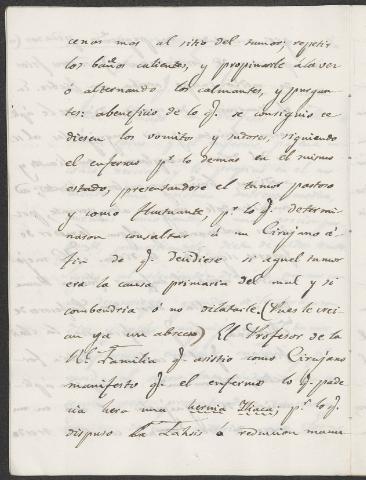 cenas mas al sitio del tumor; repetir
los baños calientes, y propinarle a la vez
ó alternando los calmantes, y purgan
tes: a beneficio de lo q. se consiguio ce
diesen los vomitos y sudores, siguiendo
el enfermo pr. lo demas en el mismo
estado, presentandose el tumor pastoso
y como fluctuante, pr. lo q. determi
naron consultar á un Cirujano á
fin de q. decidiese si aquel tumor
era la causa primaria del mal y si
combendria ó no dilatarle. (Pues le creí
an ya un abceso) El Profesor de la
Rl. Familia q. asistio como Cirujano
manifesto q. el enfermo lo q. pade
cia hera una hernia Iliaca; pr. lo q.
dispuso la Tahsis ó reduccion manu